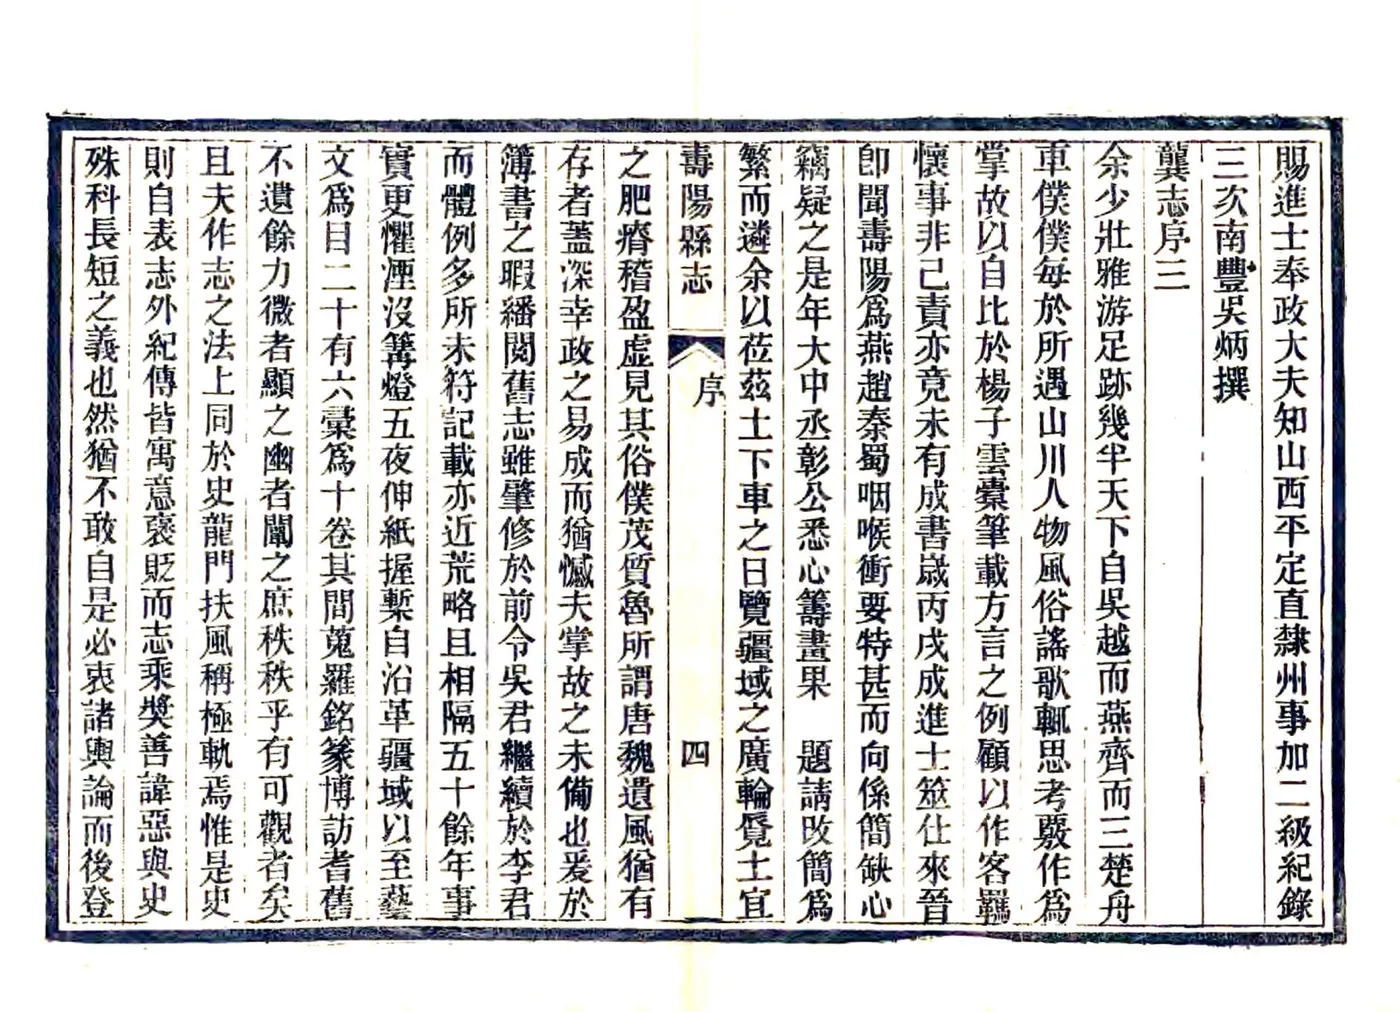 賜進士奉政大夫知山西平定直隸州事加二級紀錄
三次南豐吳炳撰
龔志序三
余少壯雅游足跡幾半天下自吳越而燕齊而三楚舟
車僕僕每於所遇山川人物風俗謠歌輒思考覈作爲
掌故以自比於楊子雲槖筆載方言之例顧以作客羈
懷事非己責亦竟未有成書歲丙戌成進士筮仕來晉
卽聞壽陽爲燕趙秦蜀咽喉衝要特甚而向係簡缺心
竊疑之是年大中丞彰公悉心籌畫果 題請改簡爲
繁而遴余以莅茲土下車之日覽疆域之廣輪覽土宜
壽陽縣志 序 四
之肥瘠稽盈虛見其俗僕茂質魯所謂唐魏遺風猶有
存者蓋深幸政之易成而猶憾夫掌故之未備也爰於
簿書之暇繙閱舊志雖肇修於前令吳君繼續於李君
而體例多所未符記載亦近荒略且相隔五十餘年事
實更懼湮沒篝燈五夜伸紙握槧自沿革疆域以至藝
文爲目二十有六彙爲十卷其間蒐羅銘篆博訪耆舊
不遺餘力微者顯之幽者闡之庶秩秩乎有可觀者矣
且夫作志之法上同於史龍門扶風稱極軌焉惟是史
則自表志外紀傳皆寓意褒貶而志乘獎善諱惡與史
殊科長短之義也然猶不敢自是必衷諸輿論而後登